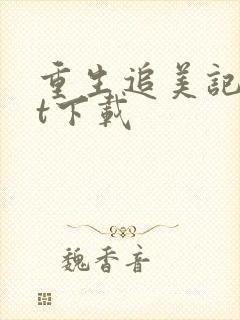 重生追美記
t下載
魏香音